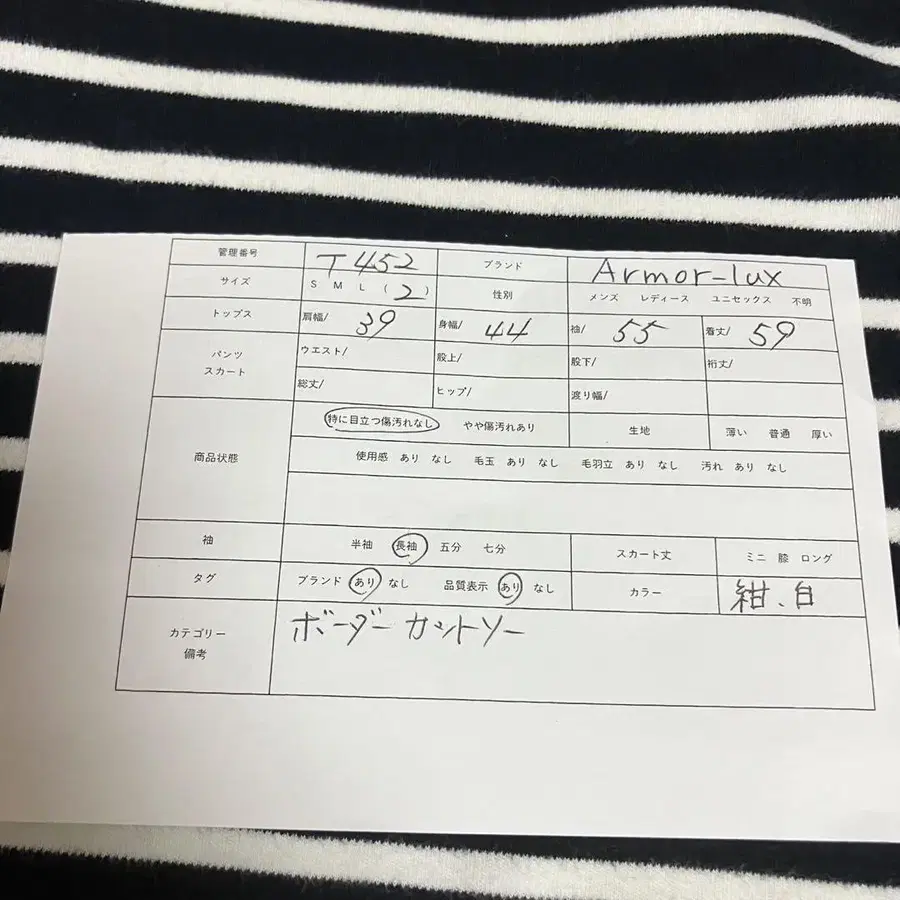 管理番号 T452 ブランド Armor-lux
サイズ S M L (2) 性別 メンズ レディース ユニセックス 不明
トップス 肩幅/ 39 身幅/ 44 袖/ 55 着丈/ 59
パンツ スカート ウエスト/ 股上/ 股下/ 裄丈/
総丈/ ヒップ/ 渡り幅/
商品状態 特に目立つ傷汚れなし やや傷汚れあり 生地 薄い 普通 厚い
使用感 あり なし 毛玉 あり なし 毛羽立 あり なし 汚れ あり なし
袖 半袖 長袖 五分 七分 スカート丈 ミニ 膝 ロング
タグ ブランド あり なし 品質表示 あり なし カラー 紺、白
カテゴリー 備考 ボーダーカットソー